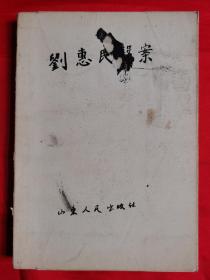 劉惠民 案
山東人民出版社